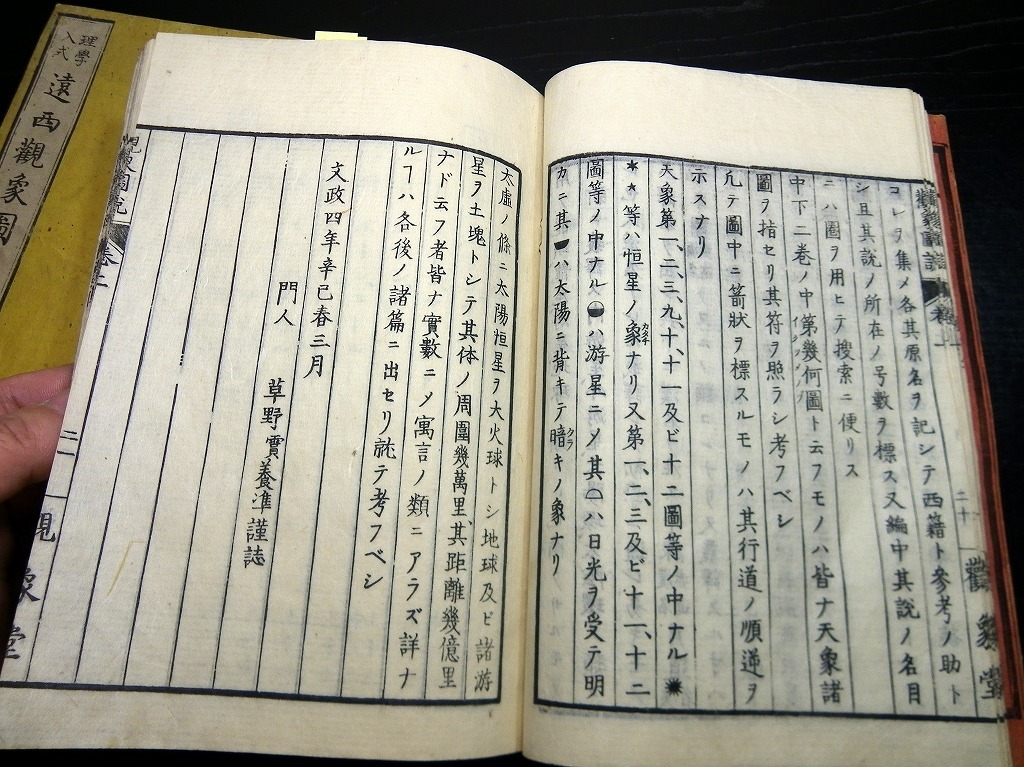 コレヲ集メ各其原名ヲ記シテ西籍ト参考ノ助ト
シ且其説ノ所在ノ号數ヲ標ス又編中其説ノ名目
ニハ圈ヲ用ヒテ搜索ニ便リス
中下二巻ノ中第幾何圖ト云フモノハ皆ナ天象諸
圖ヲ指セリ其符ヲ照ラシ考フベシ
凢テ圖中ニ箭狀ヲ標スルモノハ其行道ノ順逆ヲ
示スナリ
天象第一、二、三、九、十、十一及ビ十二圖等ノ中ナル✹
＊★等ハ恒星ノ象ナリ又第一、二、三及ビ十一、十二
圖等ノ中ナル◒ハ游星ニ〆其◠ハ日光ヲ受テ明
カニ其◒ハ太陽ニ背キテ暗キノ象ナリ
太虚ノ條ニ太陽恒星ヲ大火球トシ地球及ビ諸游
星ヲ土塊トシテ其体ノ周圍幾萬里、其距離幾億里
ナド云フ者皆ナ實數ニ〆寓言ノ類ニアラズ詳ナ
ルヿハ各後ノ諸篇ニ出セリ就テ考フベシ
文政四年辛巳春三月
門人
草野實養準謹誌
觀象圖説
卷上
二十
觀象堂
理學
入式
遠西觀象圖